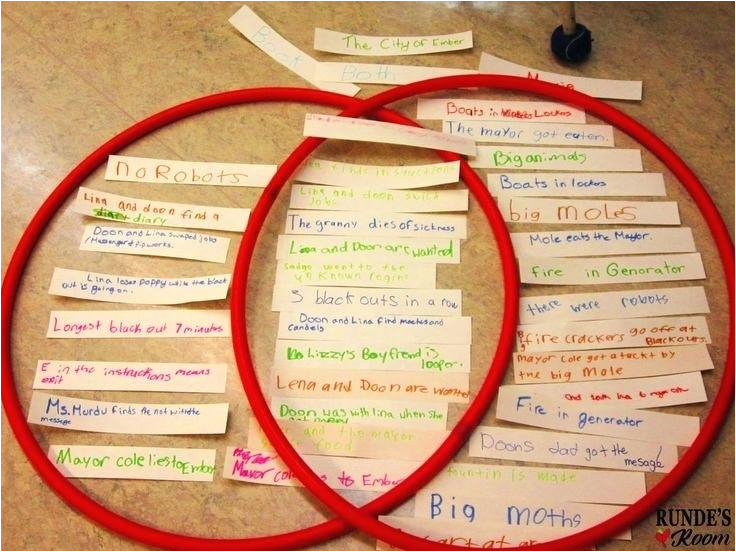 Book
The City of Ember
Both
Movie
no Robots
Lina and doon find a
diary
Doon and Lina swaped jobs
/Messenger
Lina loses poppy while the black
out is going on.
Longest black out 7 minutes
E in the instructions means
exit
Ms. Murdu finds the not with the
message
Mayor cole lies to Ember
finds instructions
Lina and doon swich
jobs
The granny dies of sickness
Lina and Doon are wanted
went to the
unknown
3 black outs in a row
Doon and Lina find matches and
candels
Lizzy's Boyfrend is
looper.
Lena and Doon are wanted
Doon was with lina when she
and the mayor
food
Mayor to Ember
Boats in Lockers
The mayor got eaten.
Big animals
Boats in lockers
big moles
Mole eats the Mayor.
Fire in Genorator
there were robots
fire crackers go off at
Black outs.
mayor cole got attackt by
the big Mole
Fire in generator
Doons dad got the
mesage
is made
Big moths
RUNDE'S
Room